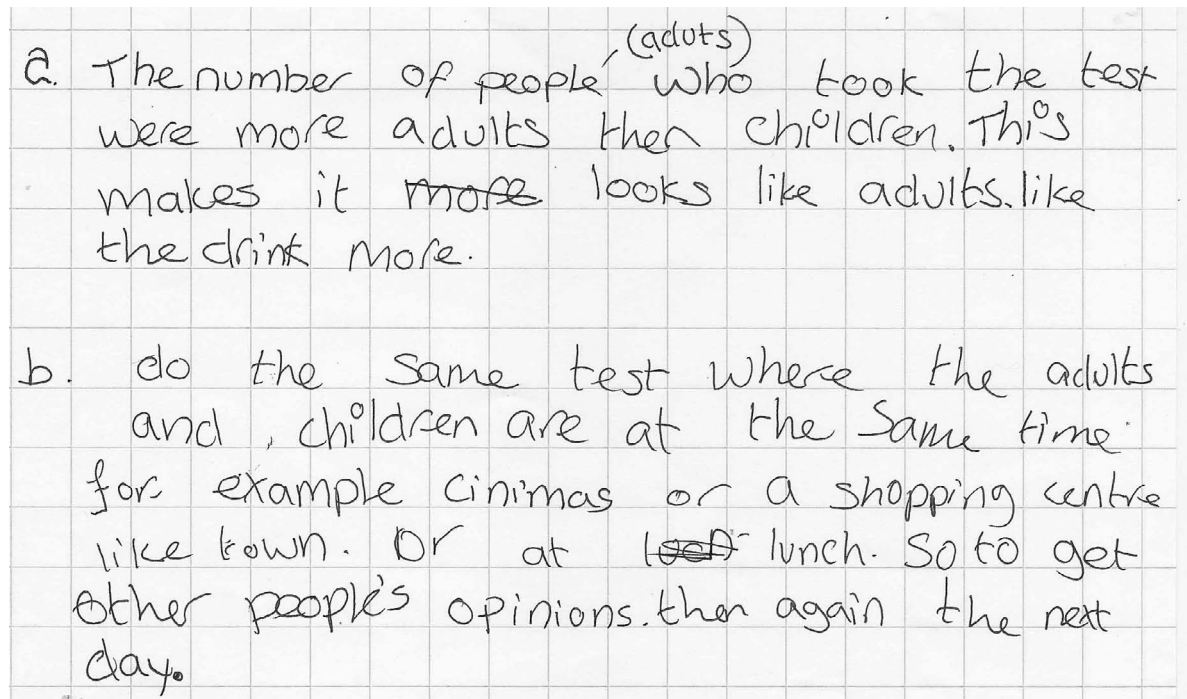 (aduts)
a. The number of people who took the test
were more adults then children. This
makes it more looks like adults. like
the drink more.
b. do the same test where the adults
and , children are at the same time
for example cinimas or a shopping centre
like town. Or at lunch. So to get
other people's opinions. then again the next
day.